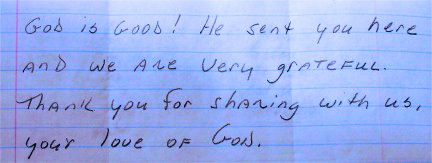 God is Good! He sent you here
and we are very grateful.
Thank you for sharing with us,
your love of God.